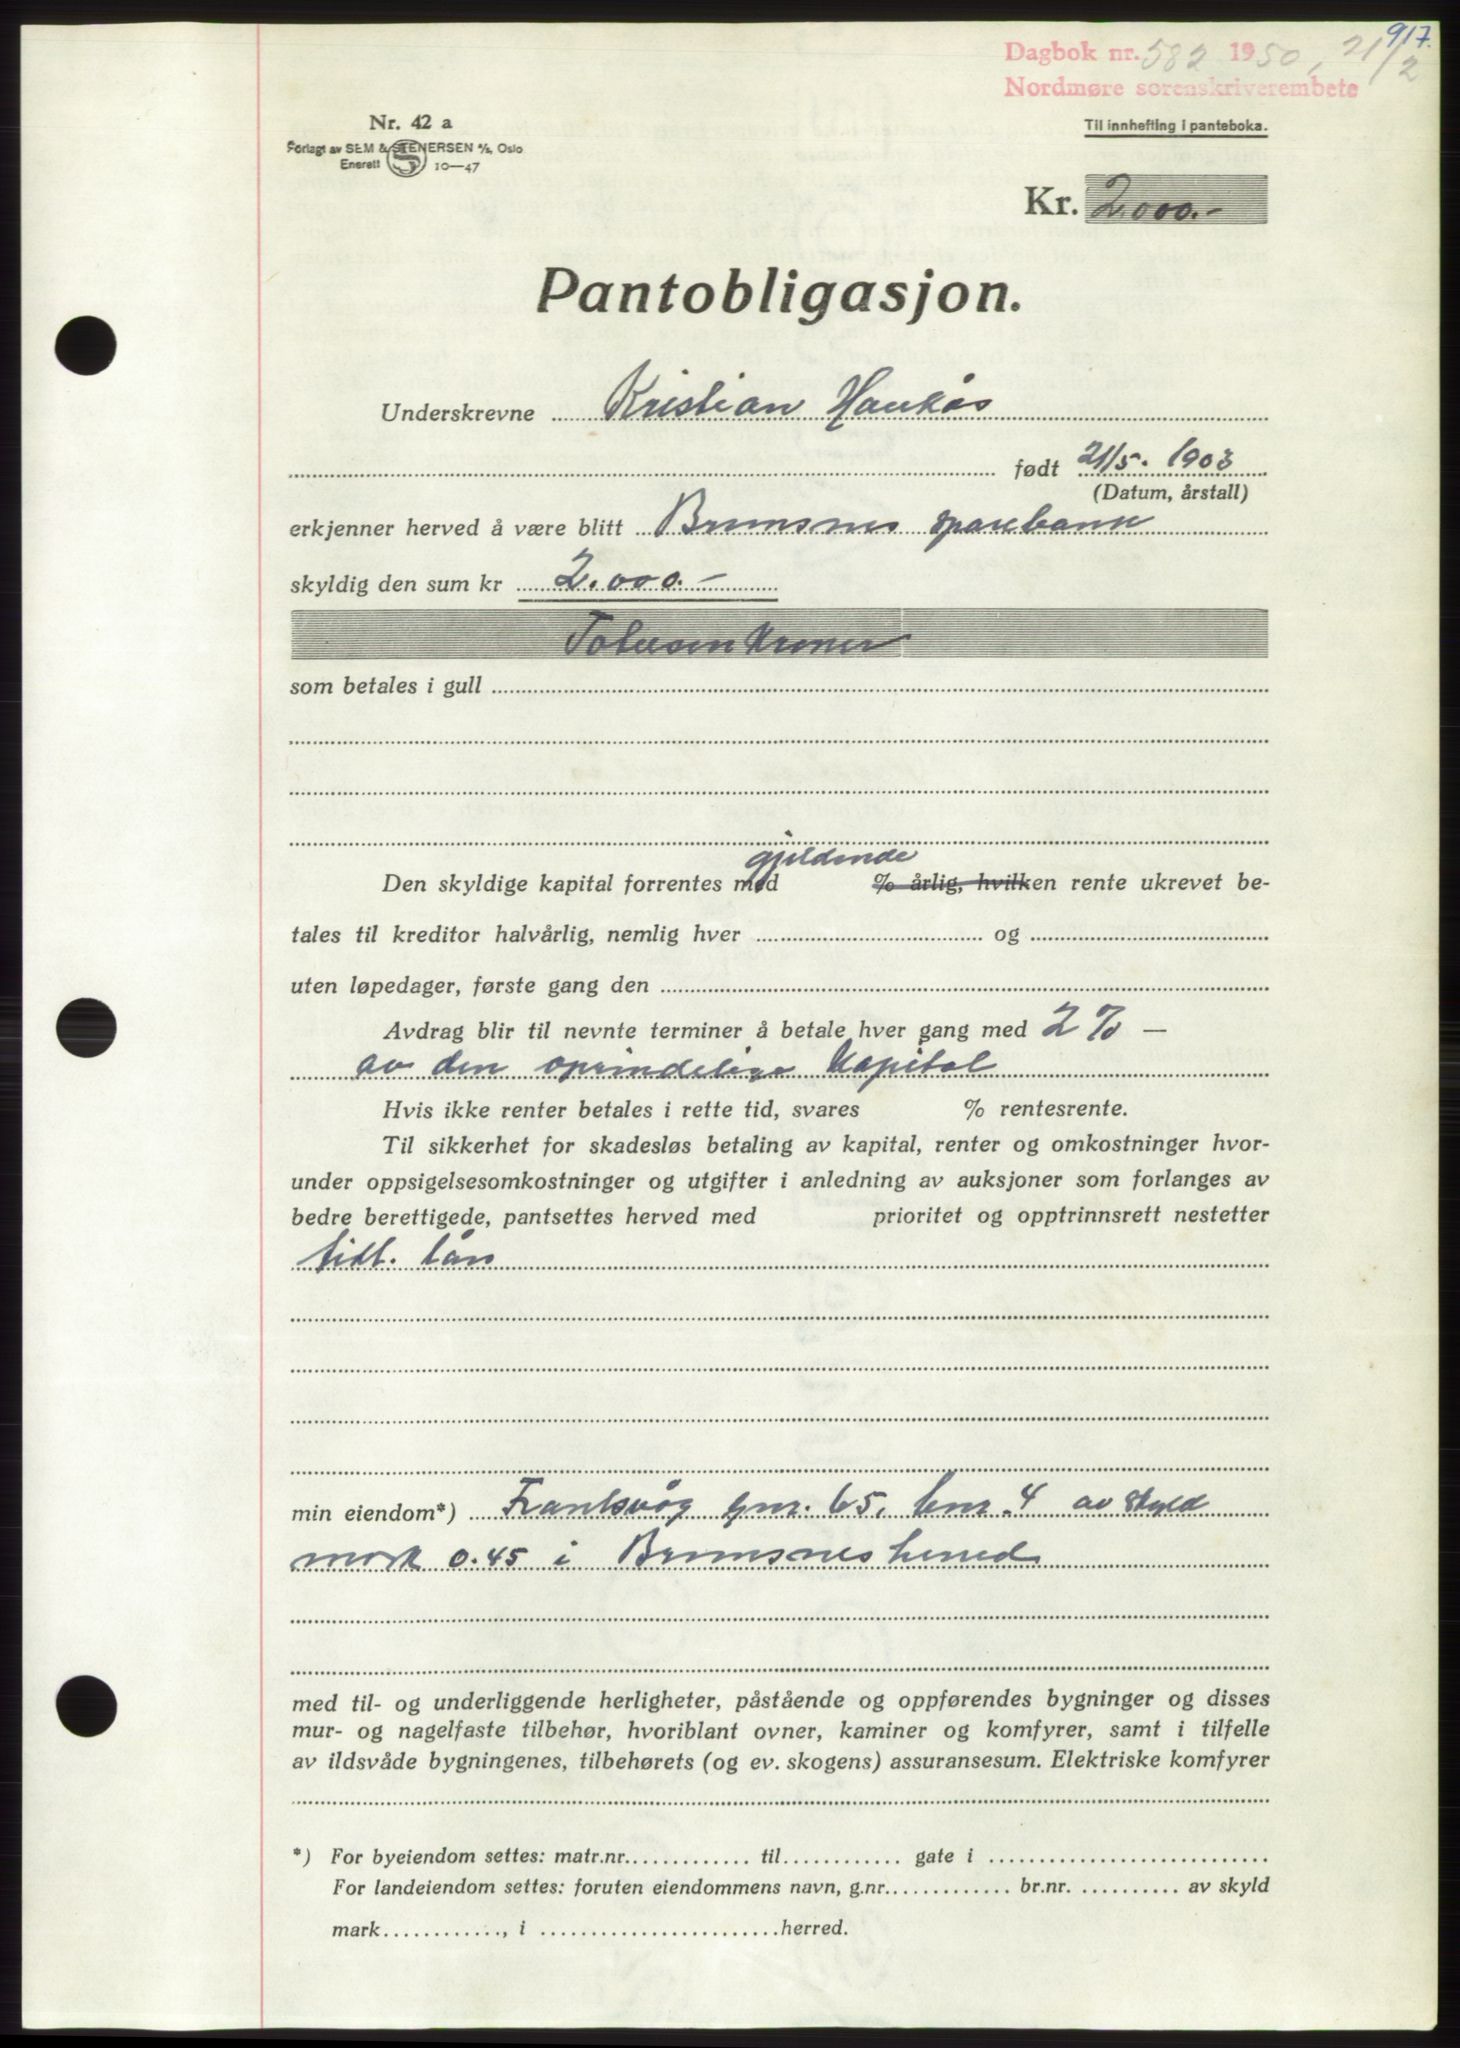 917.
Dagbok nr. 582 1950, 21/2
Nordmøre sorenskriverembete
Nr. 42 a
Forlagt av SEM & STENERSEN A/S, Oslo
Enerett 10—47
Til innhefting i panteboka.
Kr. 2.000.-
Pantobligasjon.
Underskrevne Kristian Haukås
født 21/5. 1903
(Datum, årstall)
erkjenner herved å være blitt Bremsnes sparebank
skyldig den sum kr 2.000.-
Totusen kroner
som betales i gull
gjeldende
Den skyldige kapital forrentes med % årlig, hvilken rente ukrevet be-
tales til kreditor halvårlig, nemlig hver og
uten løpedager, første gang den
Avdrag blir til nevnte terminer å betale hver gang med 2% —
av den oprindelige kapital
Hvis ikke renter betales i rette tid, svares % rentesrente.
Til sikkerhet for skadesløs betaling av kapital, renter og omkostninger hvor-
under oppsigelsesomkostninger og utgifter i anledning av auksjoner som forlanges av
bedre berettigede, pantsettes herved med prioritet og opptrinnsrett nestetter
tidl. lån
min eiendom*) Frantsvåg gnr. 65, bnr. 4 av skyld
mark 0.45 i Bremsnes herred
med til- og underliggende herligheter, påstående og oppførendes bygninger og disses
mur- og nagelfaste tilbehør, hvoriblant ovner, kaminer og komfyrer, samt i tilfelle
av ildsvåde bygningenes, tilbehørets (og ev. skogens) assuransesum. Elektriske komfyrer
*) For byeiendom settes: matr.nr. til gate i
For landeiendom settes: foruten eiendommens navn, g.nr. br.nr. av skyld
mark , i herred.